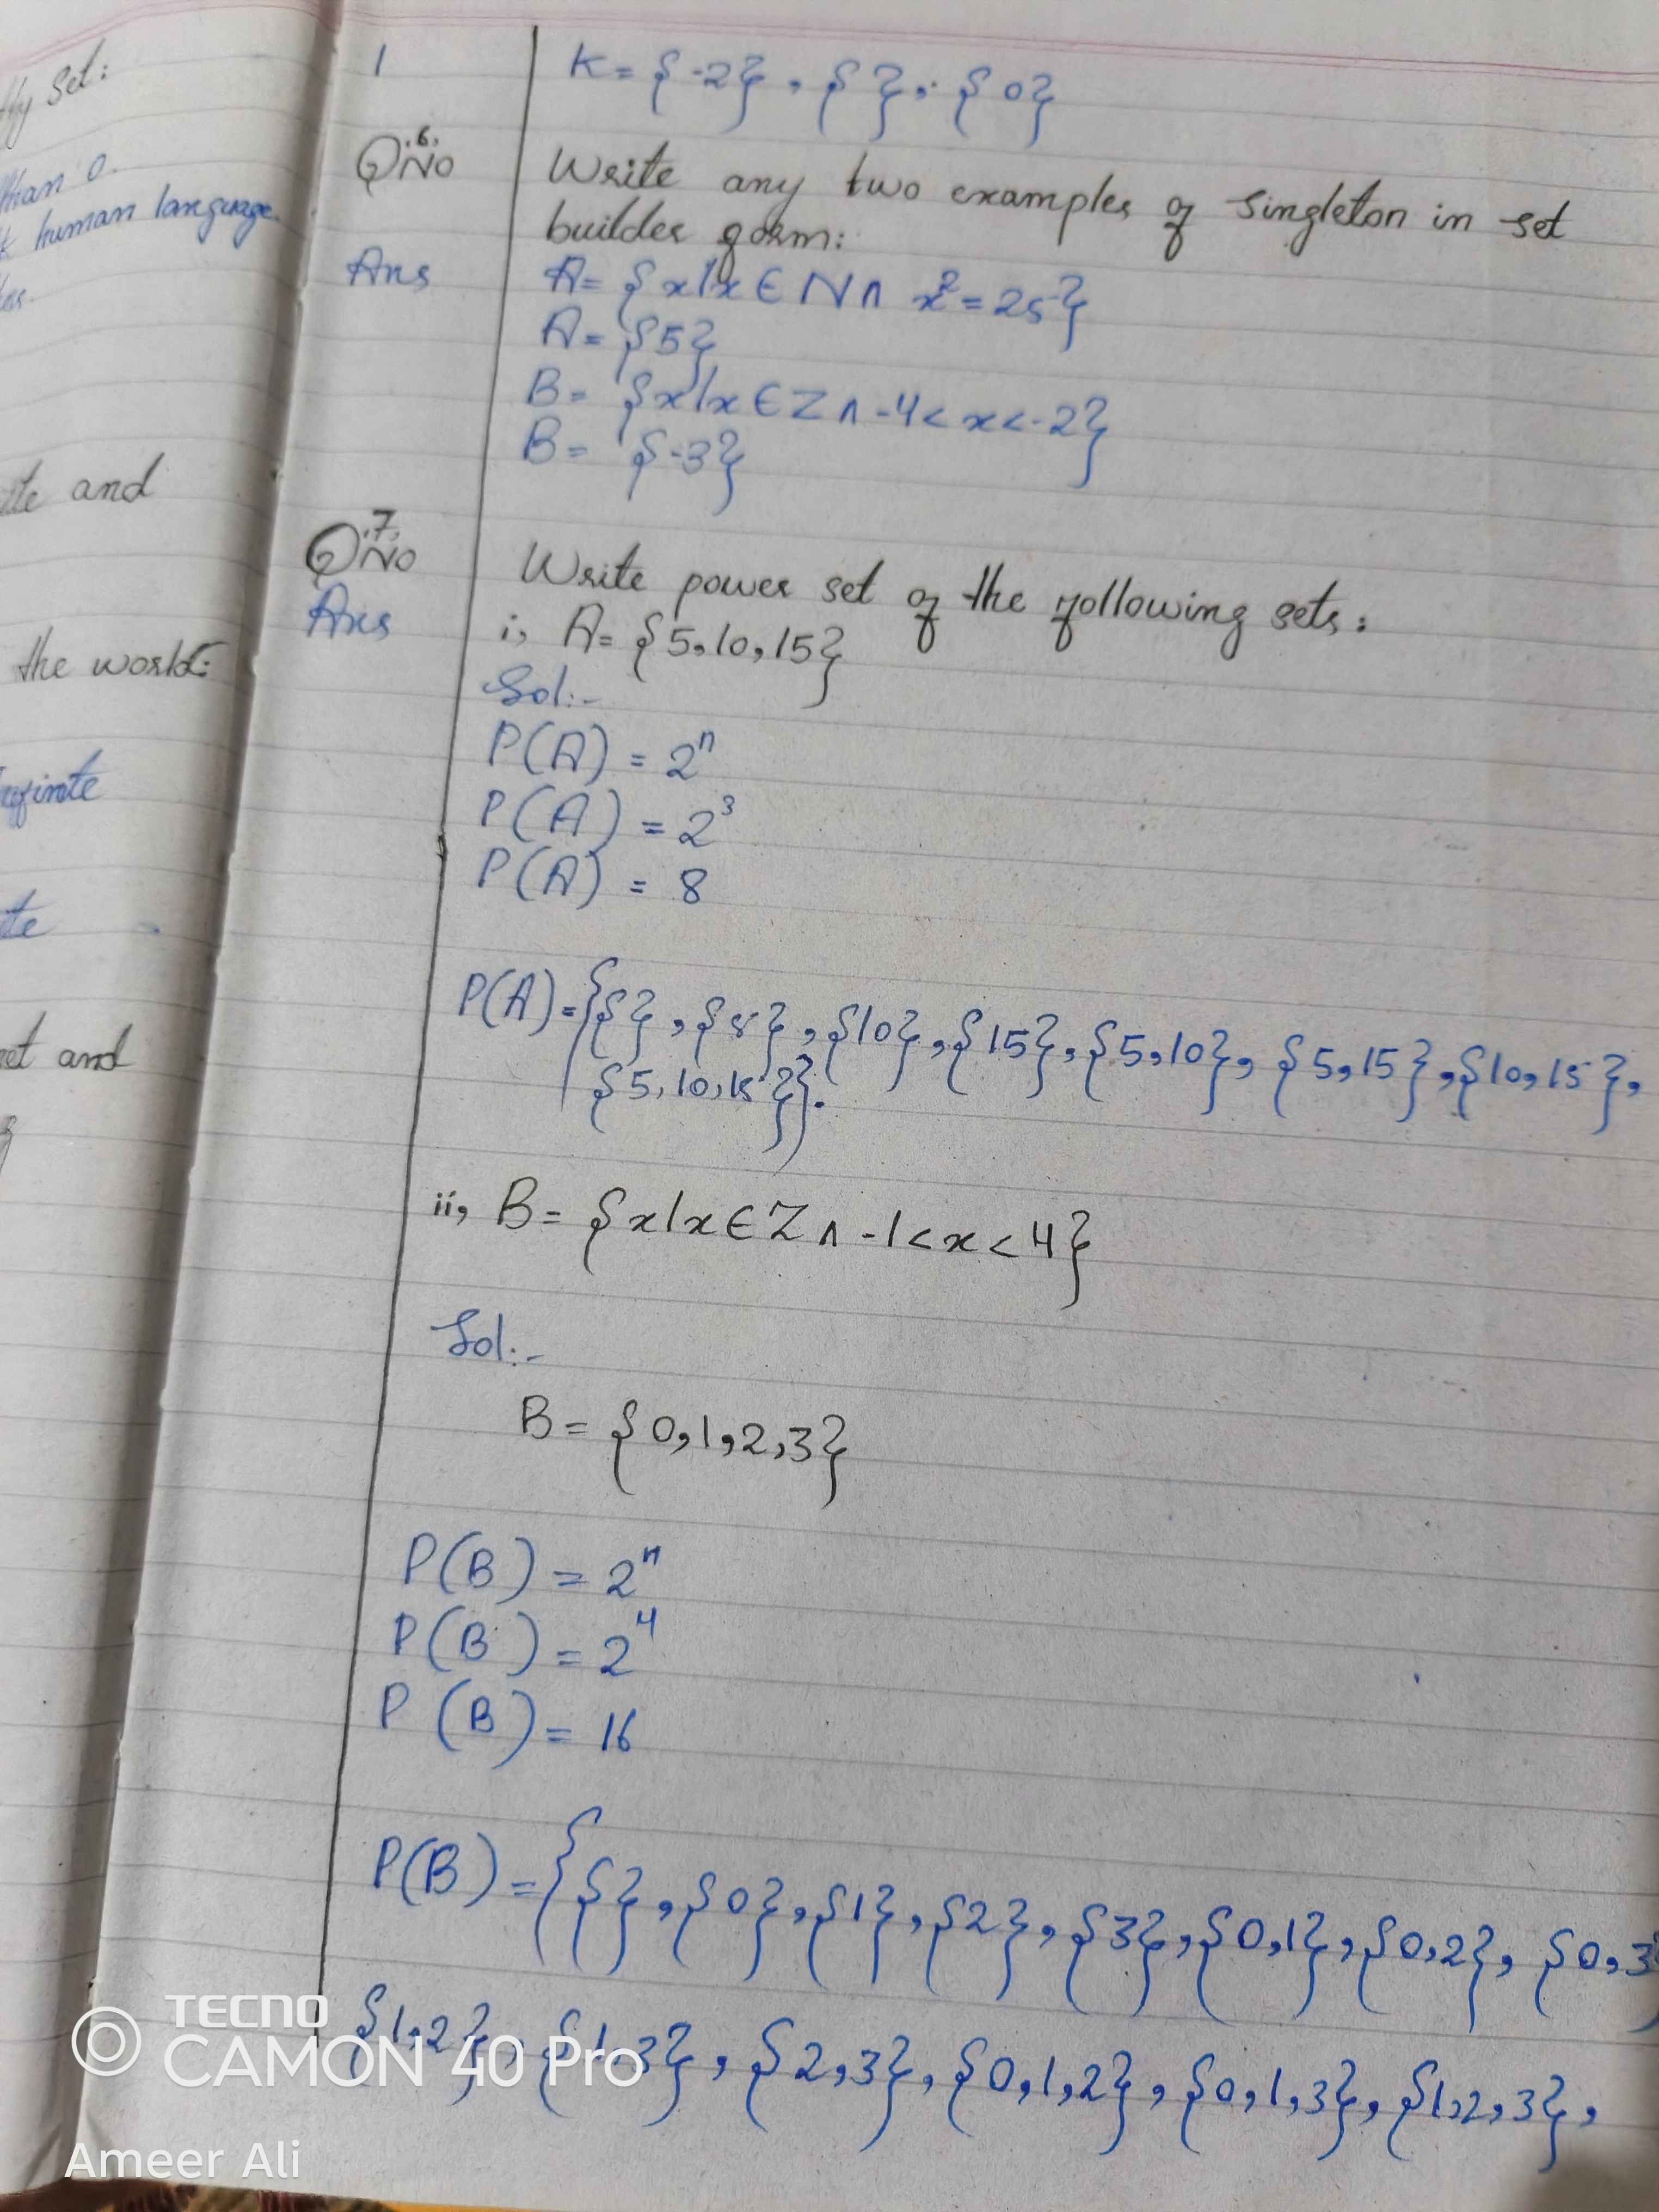 ffy Set:
than 0.
k human language.
ite and
the world:
nfinite
ite
et and
1 K= { -2} , { }, { 0}
Q.No .6. Write any two examples of singleton in set
builder form:
Ans A= { x|x ∈ N ∧ x² = 25}
A= {5}
B= {x|x ∈ Z ∧ -4 < x < -2}
B= {-3}
Q.No .7. Write power set of the following sets:
Ans i, A= {5,10,15}
Sol:-
P(A) = 2ⁿ
P(A) = 2³
P(A) = 8
P(A)={{}, {5}, {10}, {15}, {5,10}, {5,15}, {10,15},
{5,10,15}}.
ii, B= {x|x ∈ Z ∧ -1 < x < 4}
Sol:-
B= {0,1,2,3}
P(B) = 2ⁿ
P(B) = 2⁴
P(B) = 16
P(B) = {{}, {0}, {1}, {2}, {3}, {0,1}, {0,2}, {0,3}
{1,2}, {1,3}, {2,3}, {0,1,2}, {0,1,3}, {1,2,3},
TECNO
CAMON 40 Pro
Ameer Ali